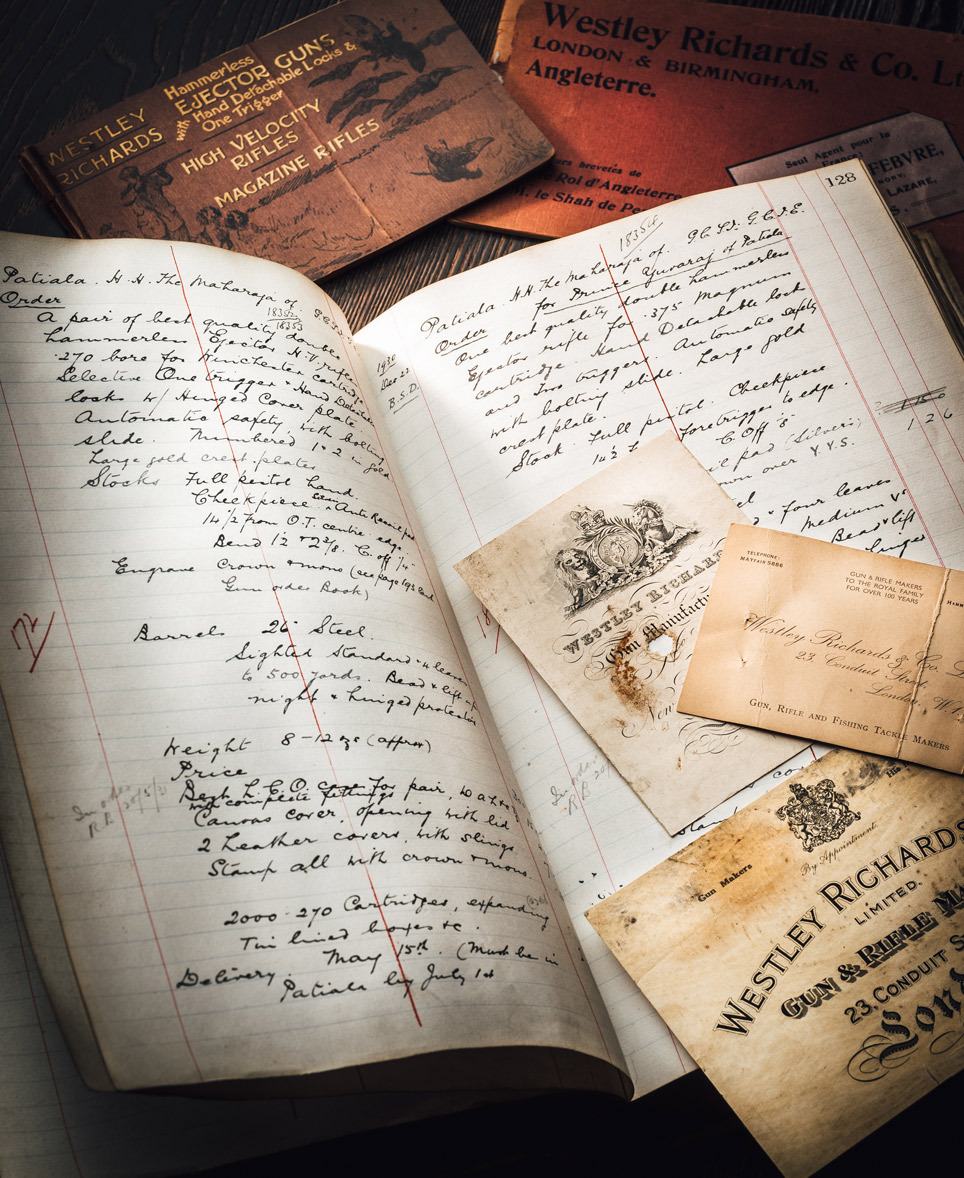 WESTLEY
RICHARDS
Hammerless
EJECTOR GUNS
with Hand Detachable Locks &
One Trigger
HIGH VELOCITY
RIFLES
MAGAZINE RIFLES
Westley Richards & Co. Lt
LONDON & BIRMINGHAM,
Angleterre.
brevetés de
Roi d'Angleterre
M. le Shah de Pe
Seul Agent pour la
France
FEBVRE,
LAZARE,
Patiala. H.H. The Maharaja of
Order
18352
18353
A pair of best quality double
hammerless Ejector H.V. rifles
.270 bore for Winchester cartridge
Selective One trigger & Hand Detachable
locks w/ Hinged Cover plate
Automatic safety, with bolting
slide. Numbered 1 & 2 in gold
Large gold crest plates
Stocks Full pistol hand.
Cheekpiece
14 1/2 from O.T. centre edge.
Bend 1 1/2 & 2 3/8. C. off 1/4
Engrave Crown & mono (see page 193
Gun order Book)
172
Barrels 26" Steel.
Sighted Standard 4 leaves
to 500 yards. Bead & lift-up
night & hinged protector
Weight 8-12 ozs (approx)
Price
In order
R.B. 20/5/31
Best L.E.O. case for pair,
with complete fittings
Canvas cover, opening with lid
2 Leather covers, with slings
Stamp all with crown & mono.
2000 .270 Cartridges, expanding
Tin lined boxes &c.
May 15th. (Must be in
Delivery. Patiala by July 1st
128
18354
Patiala. H.H. The Maharaja of. G.C.S.I. G.C.I.E.
Order for Prince Yuvaraj of Patiala
1930
Dec 22
B.S.D.
One best quality double hammerless
Ejector rifle for .375 Magnum
cartridge. Hand Detachable lock
and Two triggers. Automatic safety
with bolting slide. Large gold
crest plate.
Stock. Full pistol. Cheekpiece
14 1/2 Foretrigger to edge.
C. Off 1/8
pad (Silvers)
126
over Y.Y.S.
four leaves
Medium V
Bead & lift
hinges
In order
R.B. 20/
Stamp
WESTLEY RICHARD
Gun Manufactu
New
TELEPHONE:
MAYFAIR 5886
GUN & RIFLE MAKERS
TO THE ROYAL FAMILY
FOR OVER 100 YEARS
Westley Richards & Co. L
23, Conduit Street,
London, W.1.
GUN, RIFLE AND FISHING TACKLE MAKERS
By Appointment.
Gun Makers
WESTLEY RICHARDS
LIMITED.
GUN & RIFLE MA
23, CONDUIT S
Lon